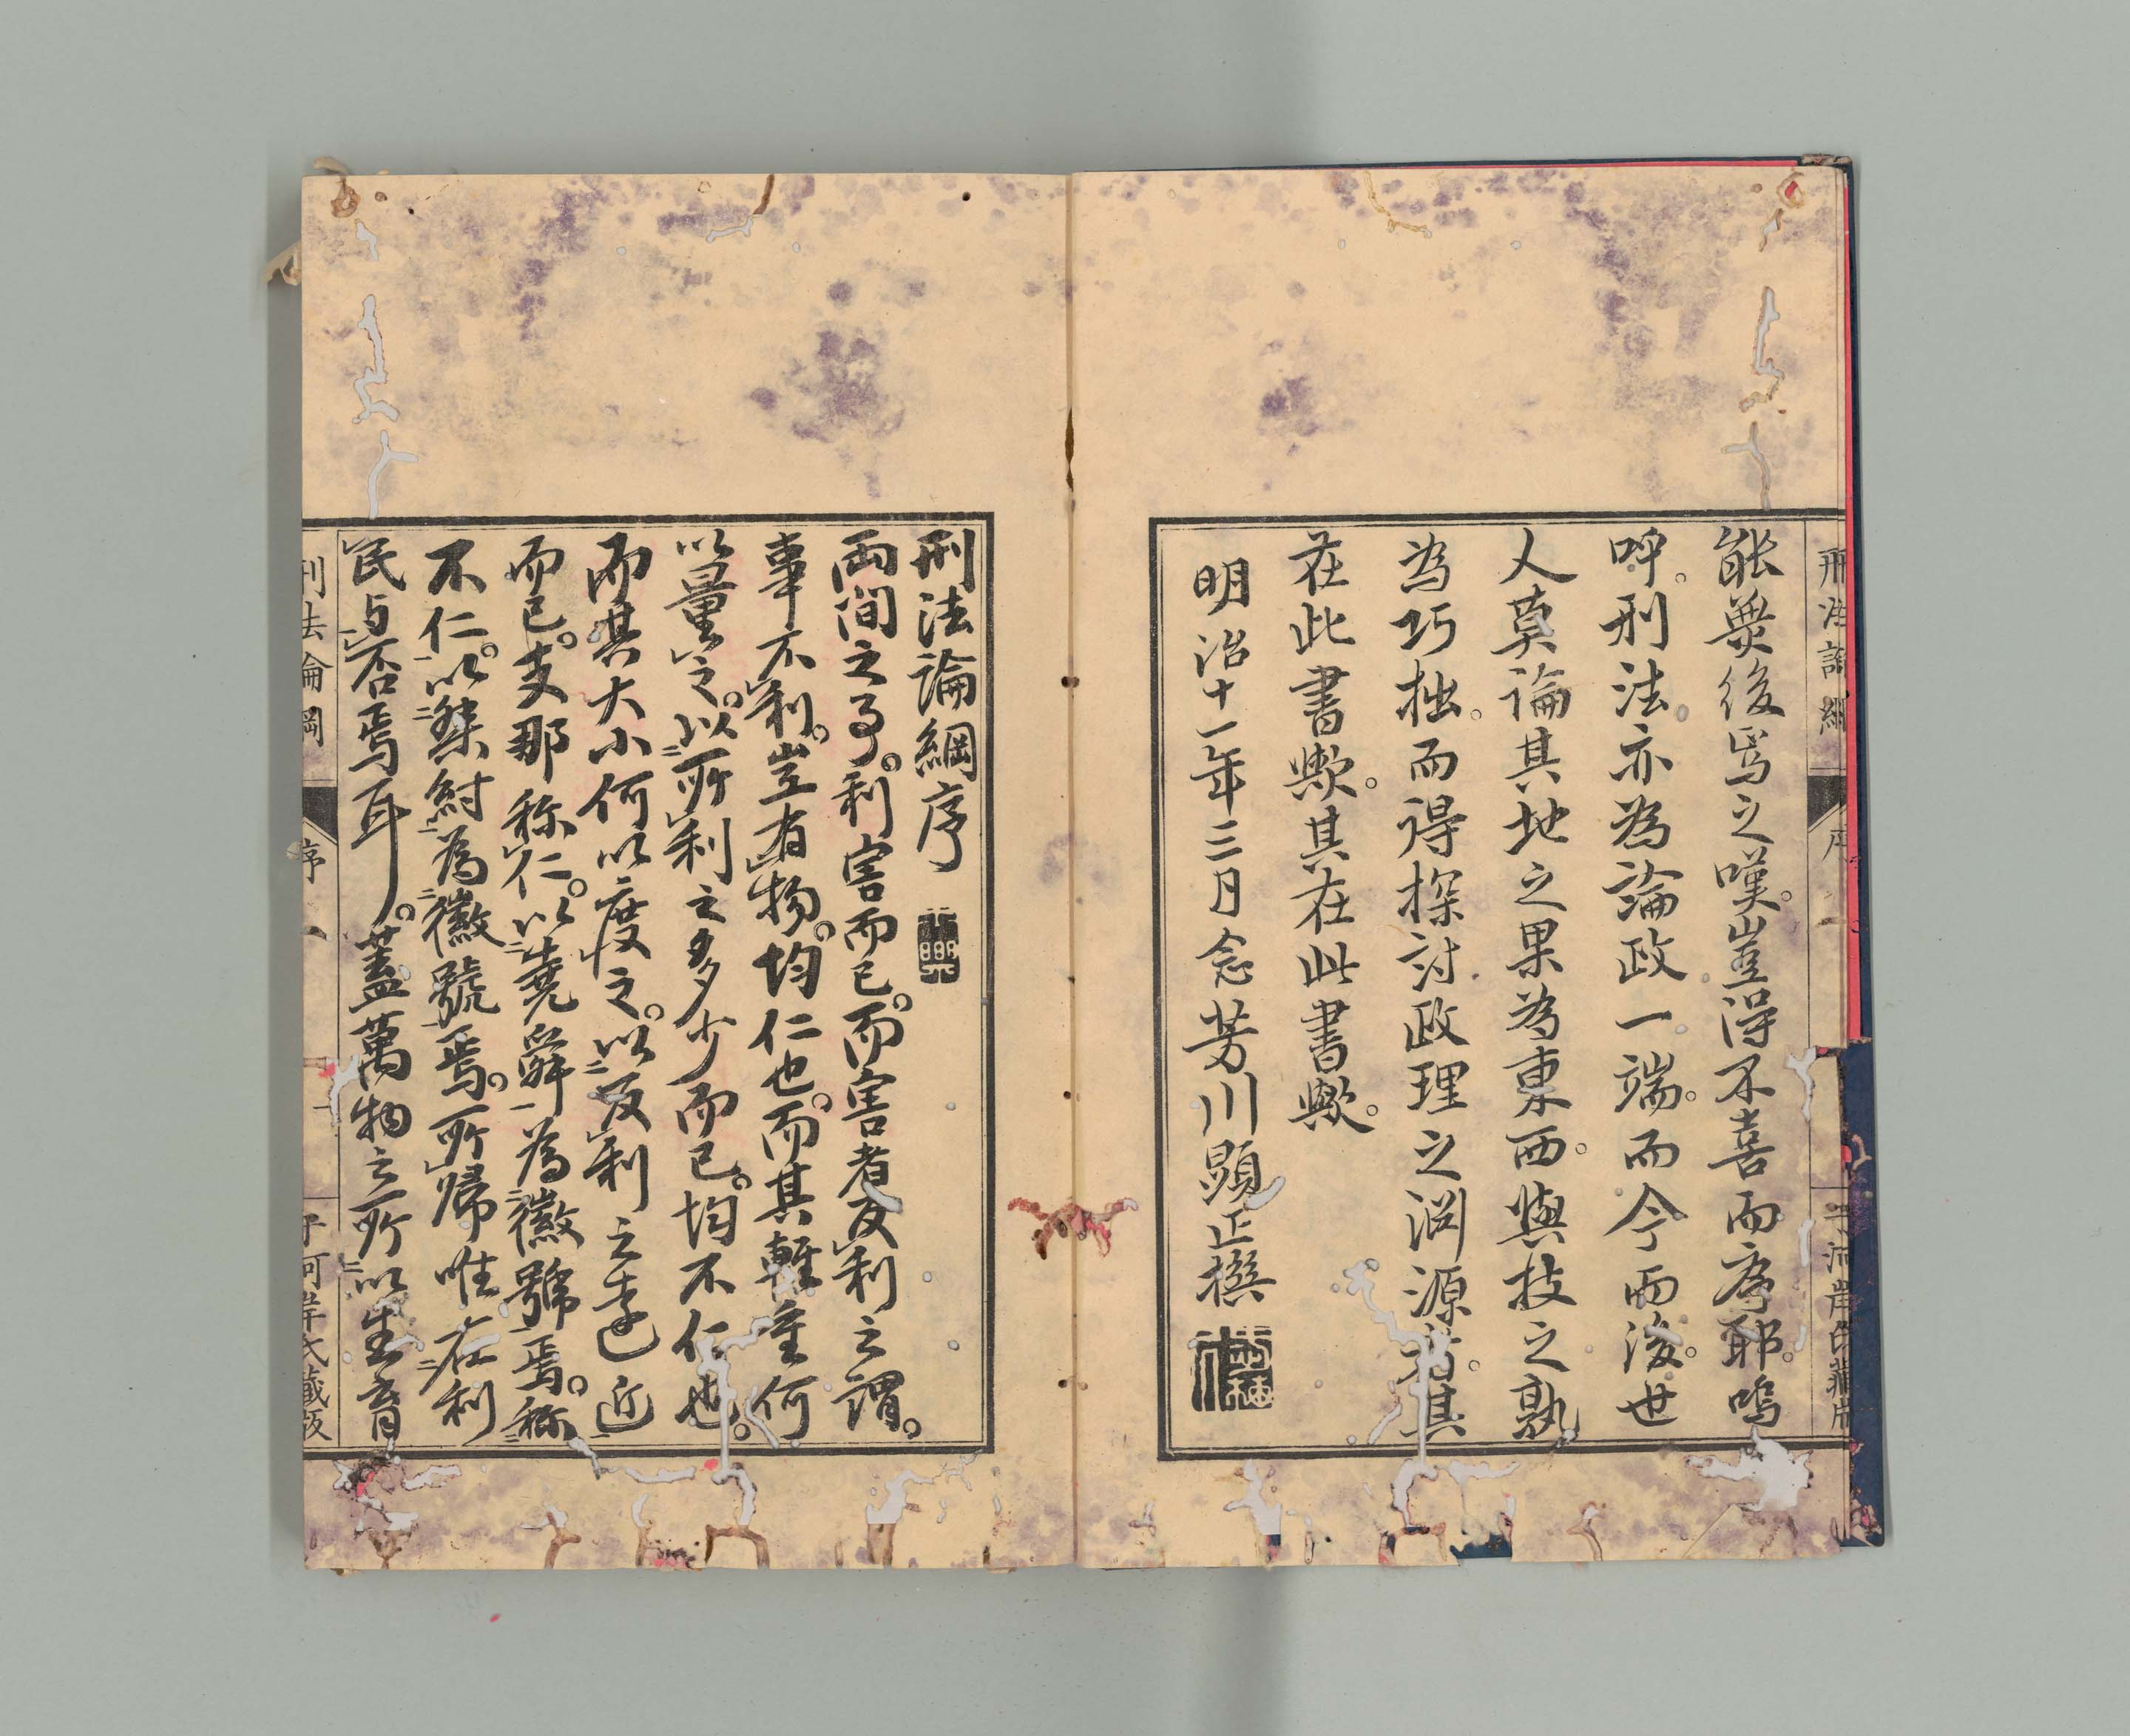 能無後焉之嘆。豈得不喜而序耶。嗚
呼。刑法亦為論政一端。而今而後。世
人莫論其地之果為東西。與技之孰
為巧拙。而得探討政理之淵源者。其
在此書歟。其在此書歟。
明治十一年三月念芳川顯正撰
刑法論綱序
両間之事。利害而已。而害者反利之謂。
事不利。豈有物。均仁也。而其輕重何
以量之。以所利之多少而已。均不仁也。
而其大小何以度之。以反利之遠近
而已。支那称仁。以堯舜為徽號焉。称
不仁。以桀紂為徽號焉。所帰唯在利
民与否焉耳。蓋萬物之所以生育
刑法論綱
序
河岸氏藏版